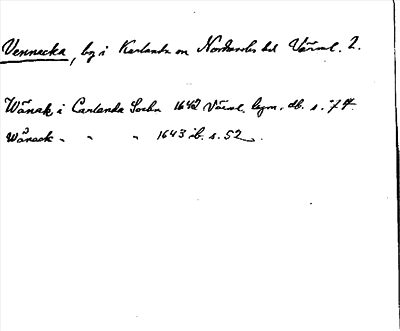 Vennacka, by i Karlanda sn Nordmarks hd Värml. l.
Wånak i Carlanda Sochn 1642 Värml. lagm. db. s.
Wånack " " " 1643 ib. s. 52.